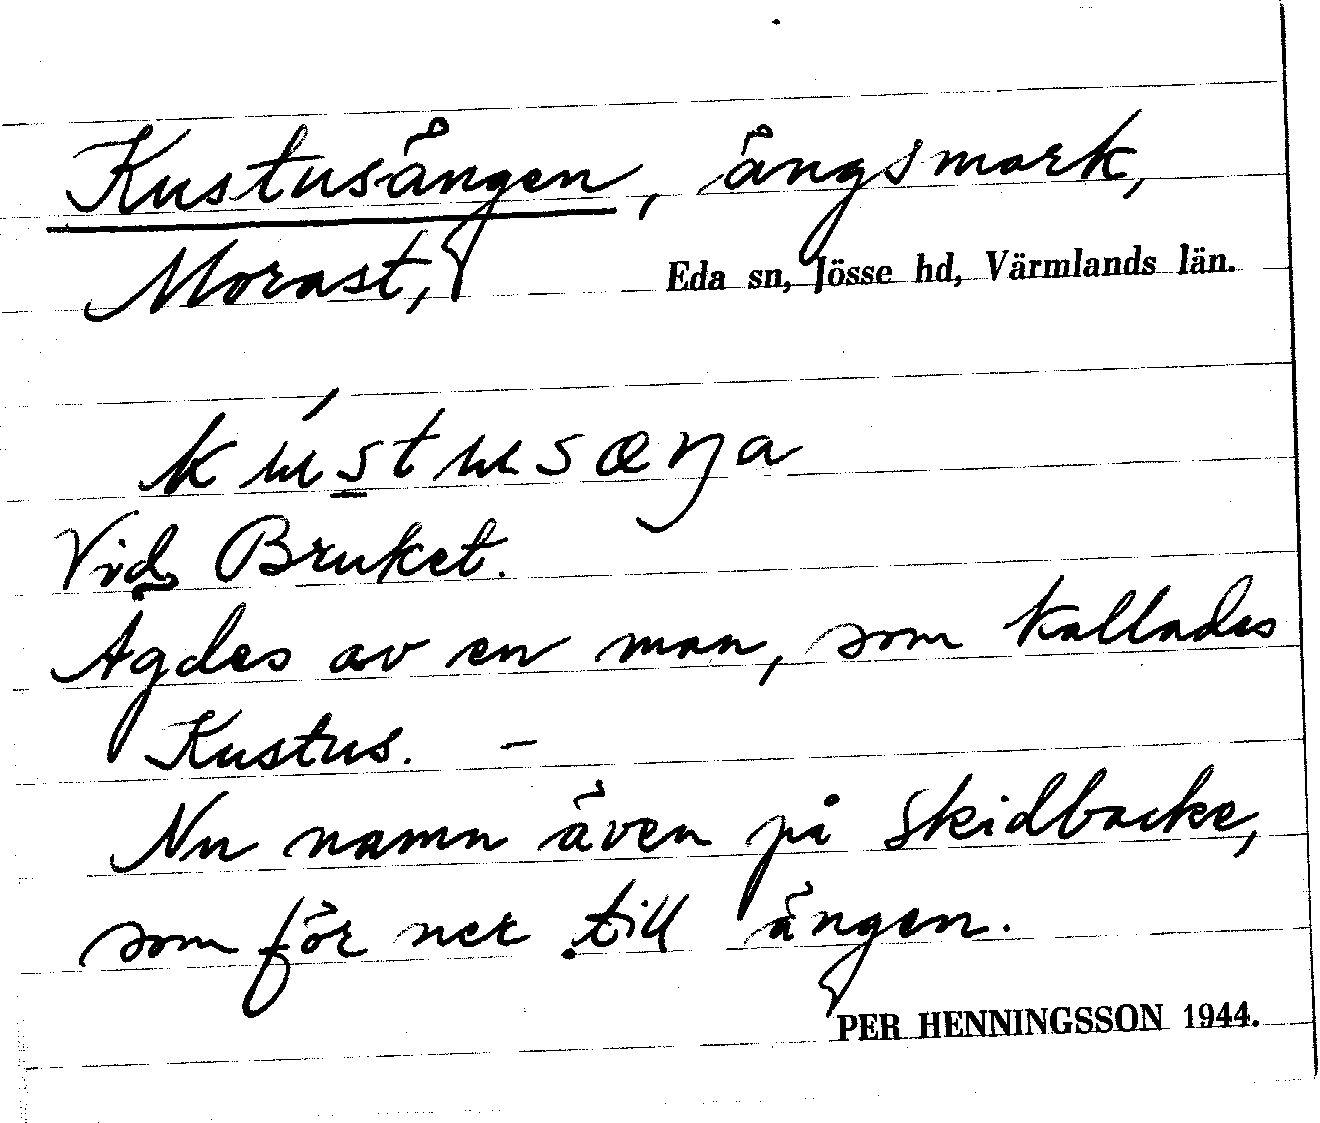 Kustusängen, ängsmark,
Morast, Eda sn, Jösse hd, Värmlands län.
kústusæŋa
Vid Bruket.
Ägdes av en man, som kallades
Kustus. –
Nu namn även på skidbacke,
som för ner till ängen.
PER HENNINGSSON 1944.